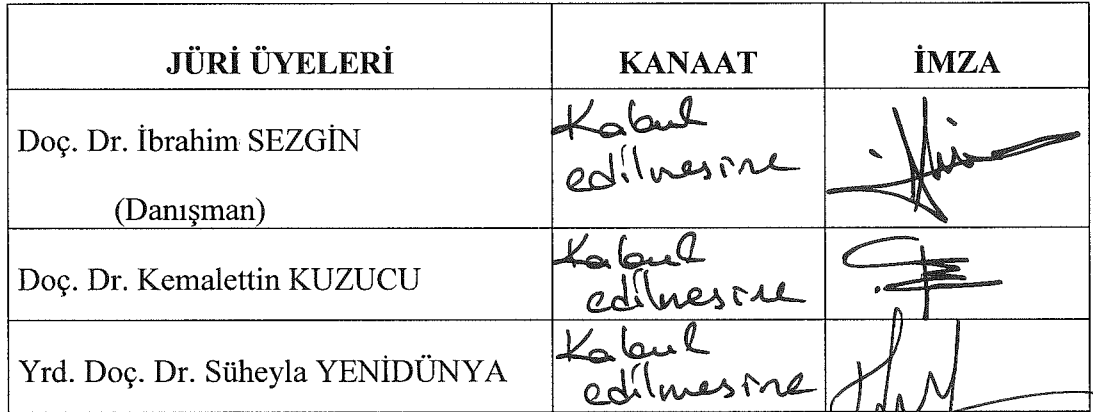 JÜRİ ÜYELERİ KANAAT İMZA
Doç. Dr. İbrahim SEZGİN
(Danışman)
Kabul
edilmesine
Doç. Dr. Kemalettin KUZUCU
Kabul
edilmesine
Yrd. Doç. Dr. Süheyla YENİDÜNYA
Kabul
edilmesine